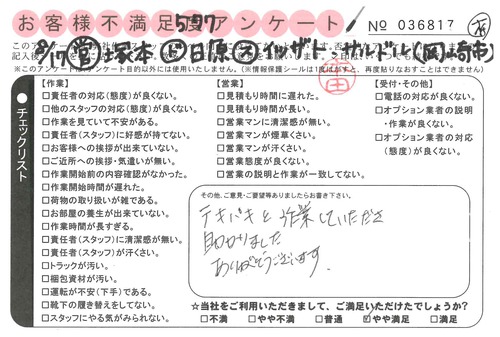 お客様不満足度アンケート
597
№ 036817
8/17 塚本 日原 イッザト・サルドル(岡崎市)
チェックリスト
【作業】
□責任者の対応(態度)が良くない。
□他のスタッフの対応(態度)が良くない。
□作業を見ていて不安がある。
□責任者(スタッフ)に好感が持てない。
□お客様への挨拶が出来ていない。
□ご近所への挨拶・気遣いが無い。
□作業開始前の内容確認がなかった。
□作業開始時間が遅れた。
□荷物の取り扱いが雑である。
□お部屋の養生が出来ていない。
□作業時間が長すぎる。
□責任者(スタッフ)に清潔感が無い。
□責任者(スタッフ)が汗くさい。
□トラックが汚い。
□梱包資材が汚い。
□運転が不安(下手)である。
□靴下の履き替えをしてない。
□スタッフにやる気がみられない。
【営業】
□見積もり時間に遅れた。
□見積もり時間が長い。
□営業マンに清潔感が無い。
□営業マンが煙草くさい。
□営業マンが汗くさい。
□営業態度が良くない。
□営業の説明と作業が一致してない。
【受付・その他】
□電話の対応が良くない。
□オプション業者の説明・作業が良くない。
□オプション業者の対応(態度)が良くない。
その他、ご意見・ご要望等ありましたらお書き下さい。
テキパキと作業していただき
助かりました
ありがとうございます。
☆当社をご利用いただきまして、ご満足いただけたでしょうか?
□不満 □やや不満 □普通 ☑やや満足 □満足